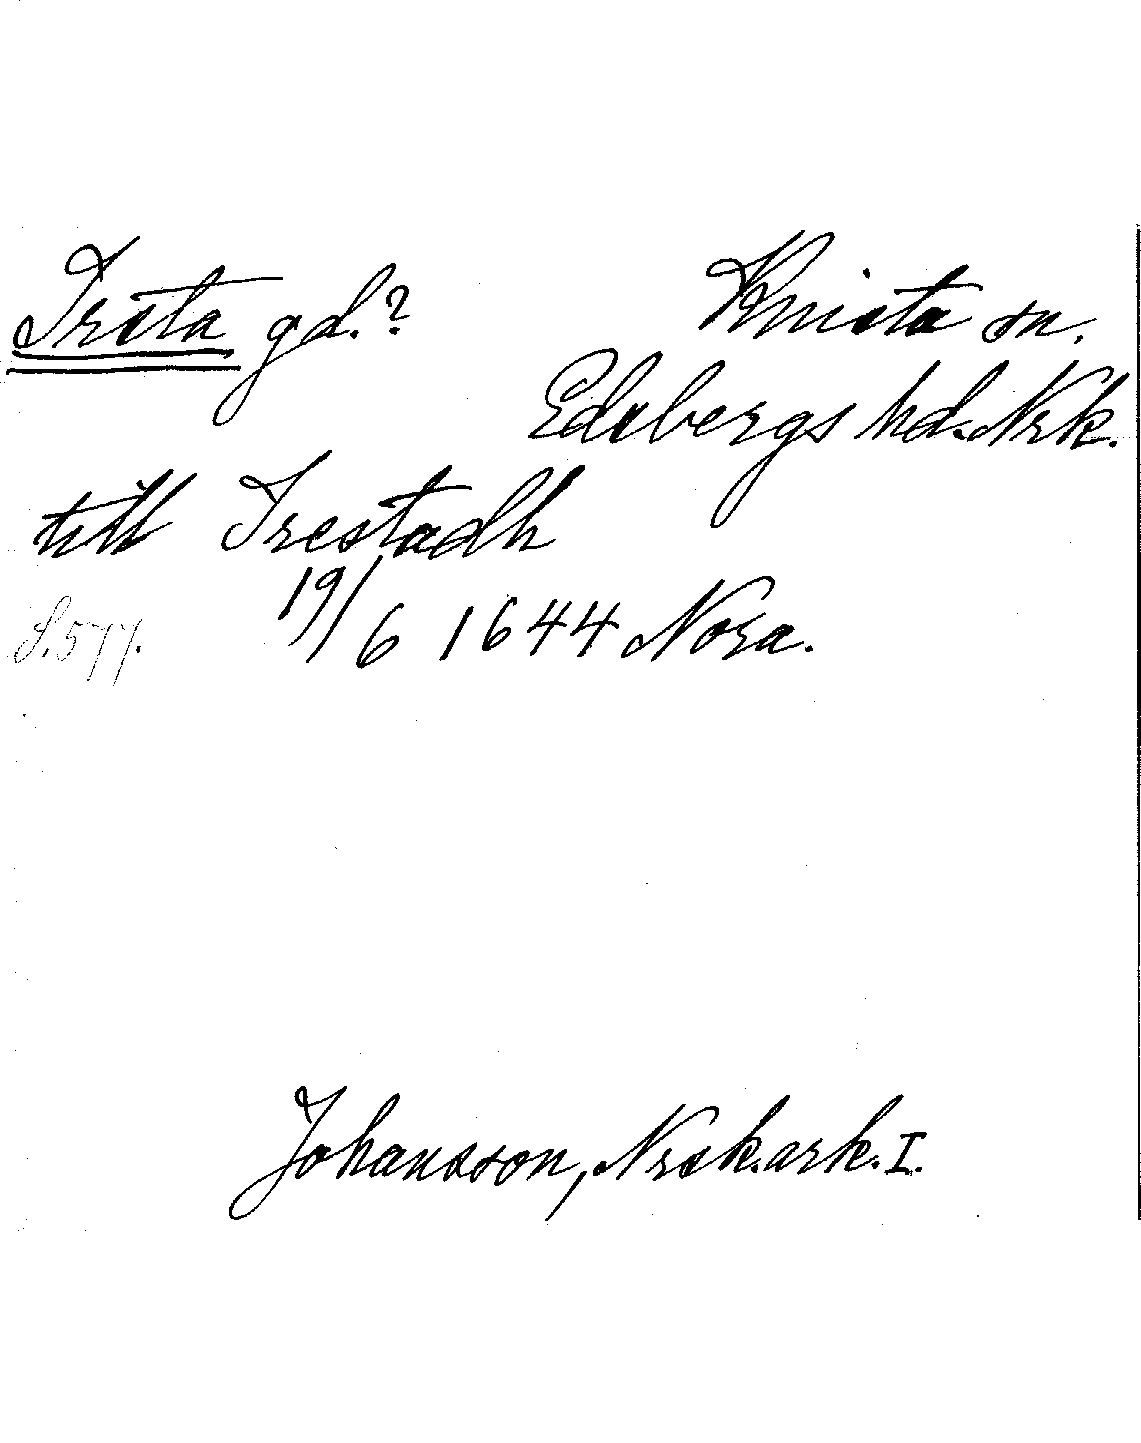 Irsta gd.? Knista sn.
Edsbergs hd. Nrk.
till Irestadh
S. 577. 19/6 1644 Nora.
Johansson, Nrsk.ark. I.